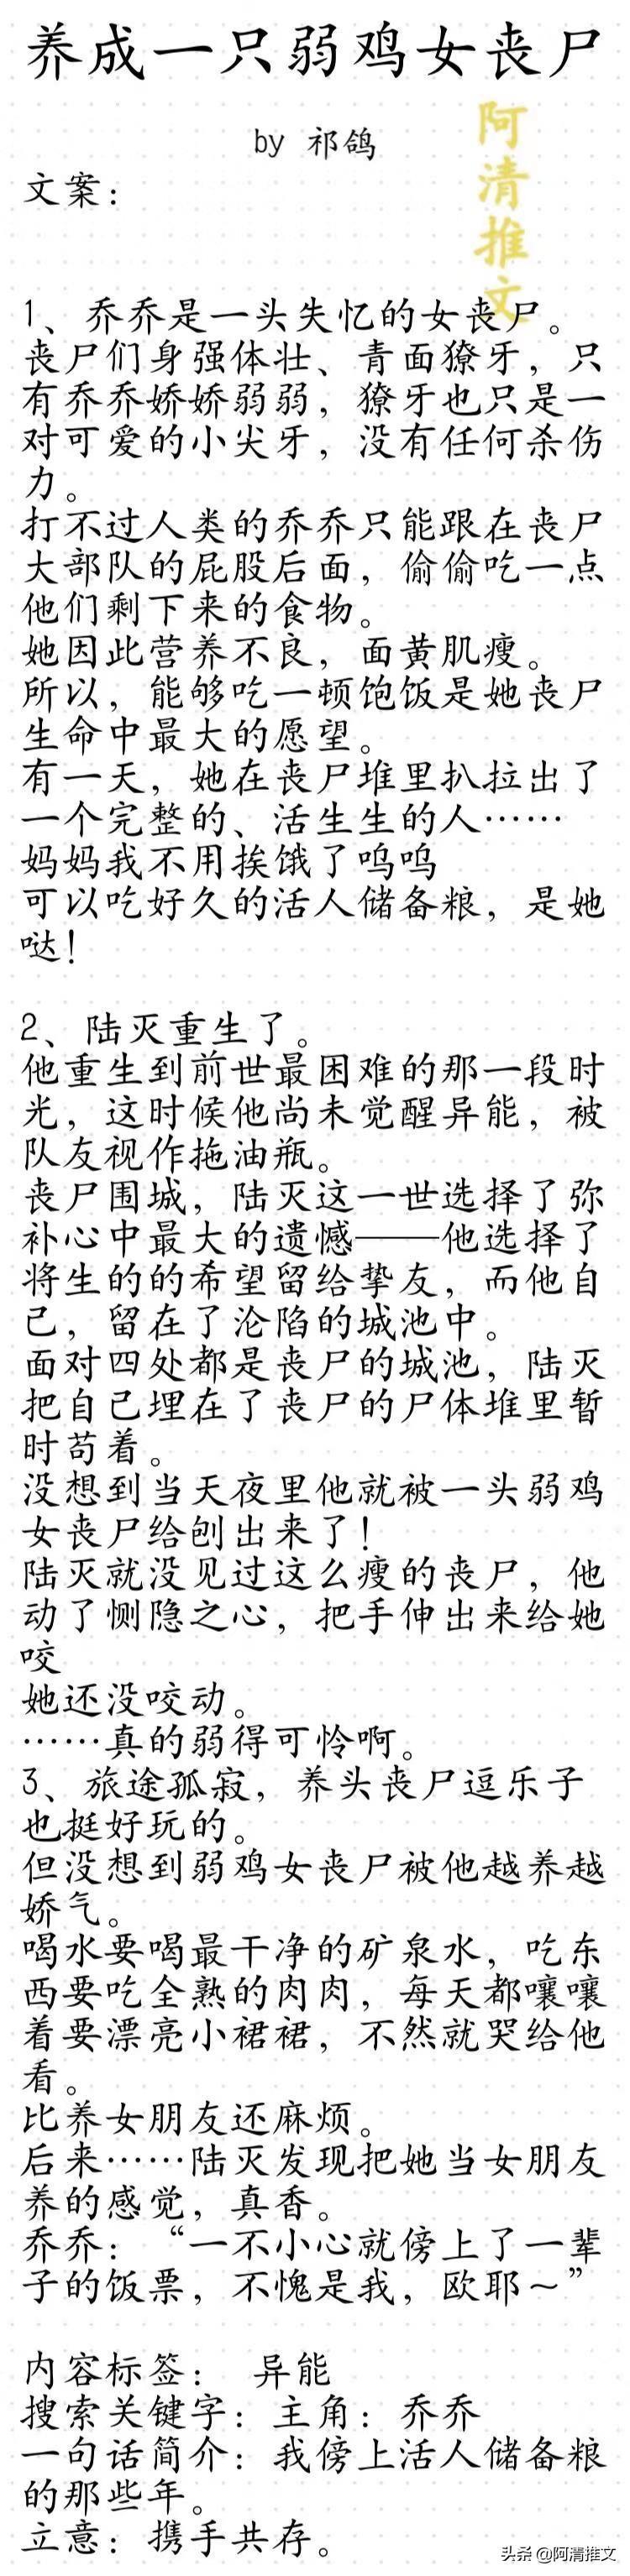 养成一只弱鸡女丧尸
by 祁鸽
阿清推文
文案：
1、乔乔是一头失忆的女丧尸。
丧尸们身强体壮、青面獠牙，只
有乔乔娇娇弱弱，獠牙也只是一
对可爱的小尖牙，没有任何杀伤
力。
打不过人类的乔乔只能跟在丧尸
大部队的屁股后面，偷偷吃一点
他们剩下来的食物。
她因此营养不良，面黄肌瘦。
所以，能够吃一顿饱饭是她丧尸
生命中最大的愿望。
有一天，她在丧尸堆里扒拉出了
一个完整的、活生生的人……
妈妈我不用挨饿了呜呜
可以吃好久的活人储备粮，是她
哒！
2、陆灭重生了。
他重生到前世最困难的那一段时
光，这时候他尚未觉醒异能，被
队友视作拖油瓶。
丧尸围城，陆灭这一世选择了弥
补心中最大的遗憾——他选择了
将生的的希望留给挚友，而他自
己，留在了沦陷的城池中。
面对四处都是丧尸的城池，陆灭
把自己埋在了丧尸的尸体堆里暂
时苟着。
没想到当天夜里他就被一头弱鸡
女丧尸给刨出来了！
陆灭就没见过这么瘦的丧尸，他
动了恻隐之心，把手伸出来给她
咬
她还没咬动。
……真的弱得可怜啊。
3、旅途孤寂，养头丧尸逗乐子
也挺好玩的。
但没想到弱鸡女丧尸被他越养越
娇气。
喝水要喝最干净的矿泉水，吃东
西要吃全熟的肉肉，每天都嚷嚷
着要漂亮小裙裙，不然就哭给他
看。
比养女朋友还麻烦。
后来……陆灭发现把她当女朋友
养的感觉，真香。
乔乔：“一不小心就傍上了一辈
子的饭票，不愧是我，欧耶～”
内容标签： 异能
搜索关键字：主角：乔乔
一句话简介：我傍上活人储备粮
的那些年。
立意：携手共存。
头条 @阿清推文